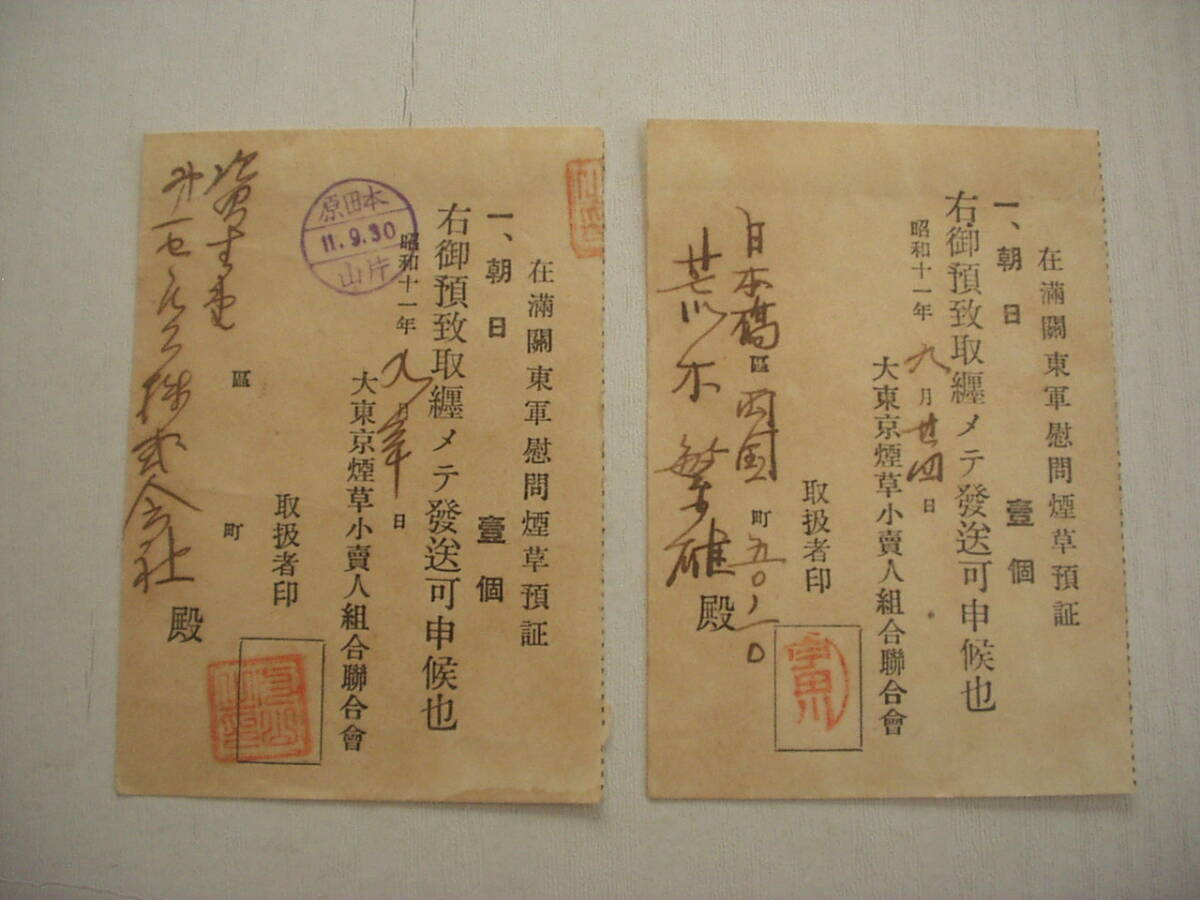 在滿關東軍慰問煙草預証
一、朝日 壹個
右御預致取纒メテ發送可申候也
昭和十一年九月廿四日
大東京煙草小賣人組合聯合會
取扱者印
日本橋區 両国町 五〇ノ一〇
荒木繁雄殿
宇田川
在滿關東軍慰問煙草預証
一、朝日 壹個
右御預致取纒メテ發送可申候也
昭和十一年九月 日
大東京煙草小賣人組合聯合會
取扱者印
區 町
資生堂
株式会社殿
原田本
11.9.30
山片